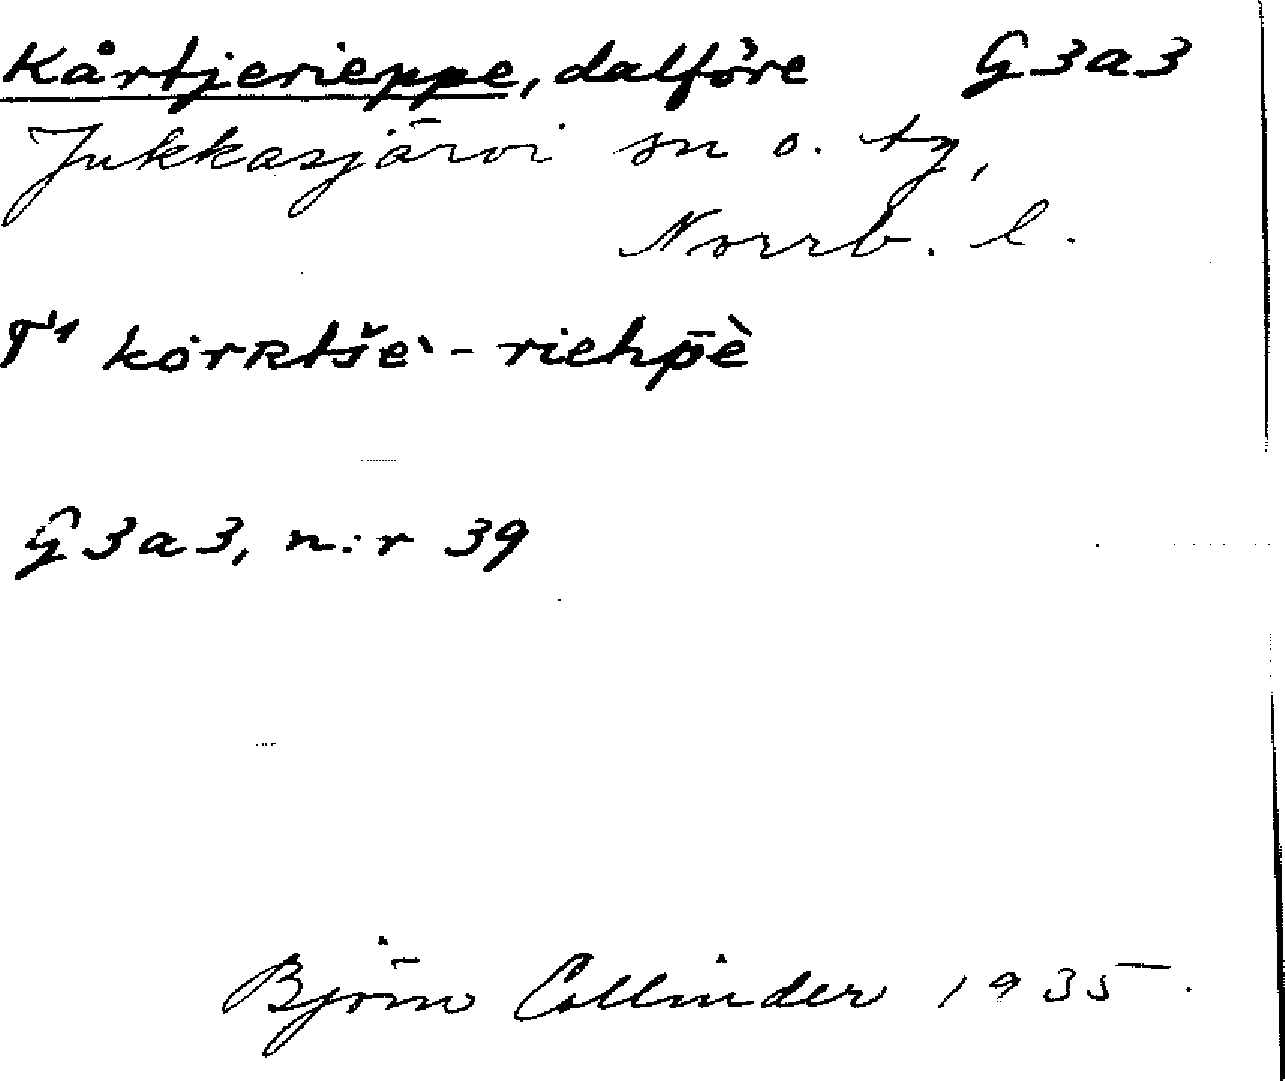 Kårtjerieppe, dalföre G3a3
Jukkasjärvi sn o. tg,
Norrb. l.
korRtše`-riehp̄è
G3a3, n:r 39
Björn Collinder 1935.